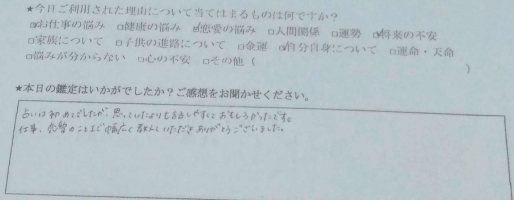 ★今日ご利用された理由について当てはまるものは何ですか？
☑お仕事の悩み □健康の悩み ☑恋愛の悩み □人間関係 □運勢 ☑将来の不安
□家族について □子供の進路について □金運 ☑自分自身について □運命・天命
□悩みが分からない □心の不安 □その他（ ）
★本日の鑑定はいかがでしたか？ご感想をお聞かせください。
占いは初めてでしたが、思っていたよりも話しやすくておもしろかったです。
仕事、恋愛のことまで幅広く教えていただきありがとうございました。